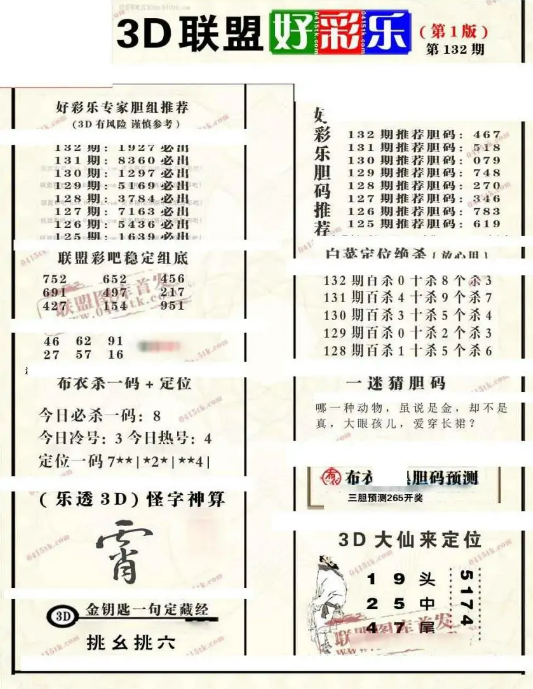 3D联盟 好彩乐 (第1版)
第132期
好彩乐专家胆组推荐
(3D有风险 谨慎参考)
132期: 1927必出
131期: 8360必出
130期: 1297必出
129期: 5169必出
128期: 3784必出
127期: 7163必出
126期: 5436必出
125期: 1639必出
联盟彩吧稳定组底
752 652 456
691 497 217
427 154 951
46 62 91
27 57 16
布衣杀一码+定位
今日必杀一码: 8
今日冷号: 3 今日热号: 4
定位一码 7**|*2*|**4|
(乐透3D) 怪字神算
霄
3D 金钥匙一句定藏经
挑幺挑六
好彩乐胆码推荐
132期推荐胆码: 467
131期推荐胆码: 518
130期推荐胆码: 079
129期推荐胆码: 748
128期推荐胆码: 270
127期推荐胆码: 346
126期推荐胆码: 783
125期推荐胆码: 619
白菜定位绝杀(放心用)
132期百杀0十杀8个杀3
131期百杀4十杀9个杀7
130期百杀3十杀5个杀4
129期百杀0十杀2个杀3
128期百杀1十杀5个杀6
一迷猜胆码
哪一种动物，虽说是金，却不是
真，大眼孩儿，爱穿长裙?
布衣 胆码预测
三胆预测265开奖
3D大仙来定位
1 9 头
2 5 中
4 7 尾
5174
联盟图库首发
0415tk.com